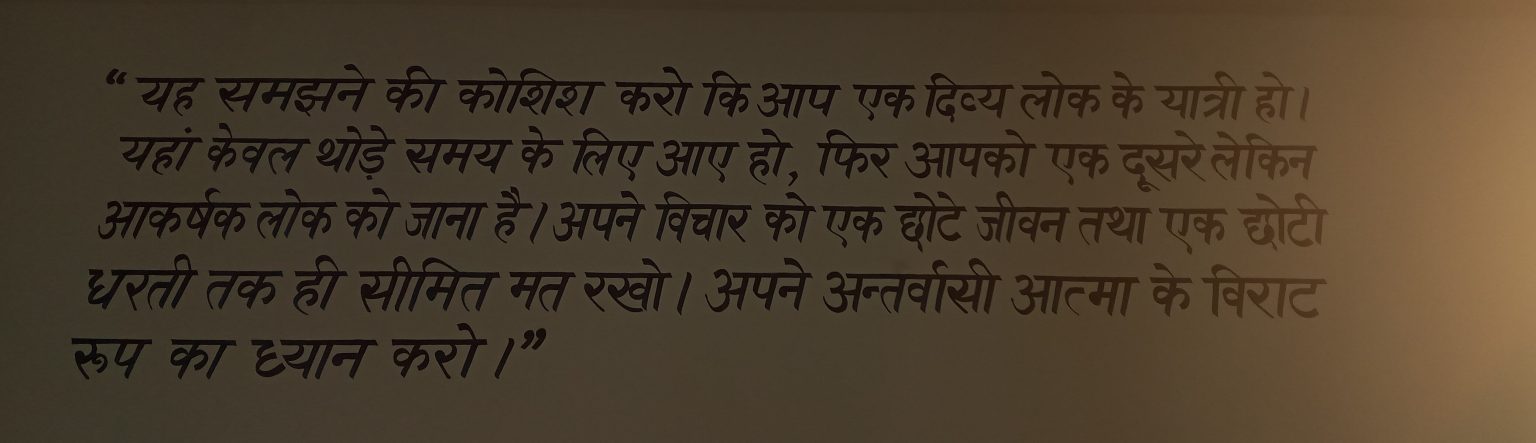 “ यह समझने की कोशिश करो कि आप एक दिव्य लोक के यात्री हो।
यहां केवल थोड़े समय के लिए आए हो, फिर आपको एक दूसरे लेकिन
आकर्षक लोक को जाना है। अपने विचार को एक छोटे जीवन तथा एक छोटी
धरती तक ही सीमित मत रखो। अपने अन्तर्वासी आत्मा के विराट
रूप का ध्यान करो।”